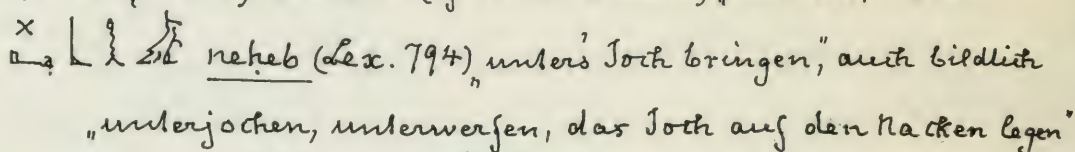 neḥeb (Lex. 794) „unter's Joch bringen," auch bildlich
„unterjochen, unterwerfen, das Joch auf den Nacken legen"